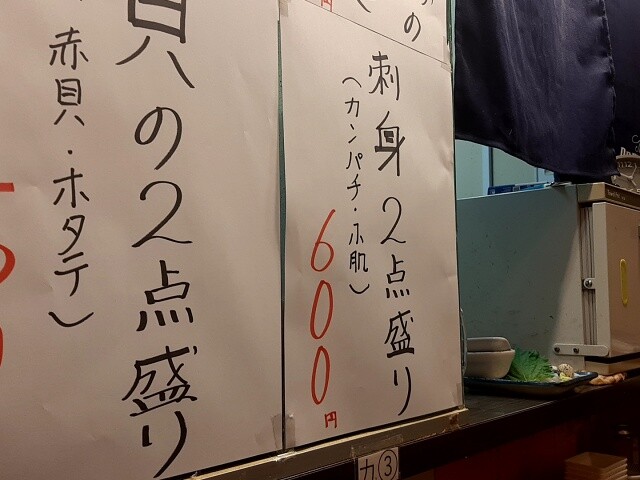 の
円
刺身2点盛り
(カンパチ・ホ肌)
600円
貝の2点盛り
赤貝・ホタテ)
カ③